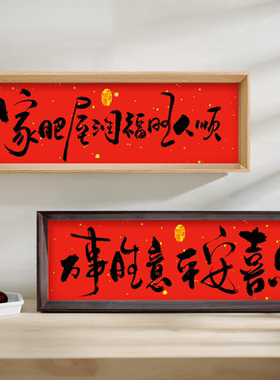 家肥屋润福旺人顺
万事胜意平安喜